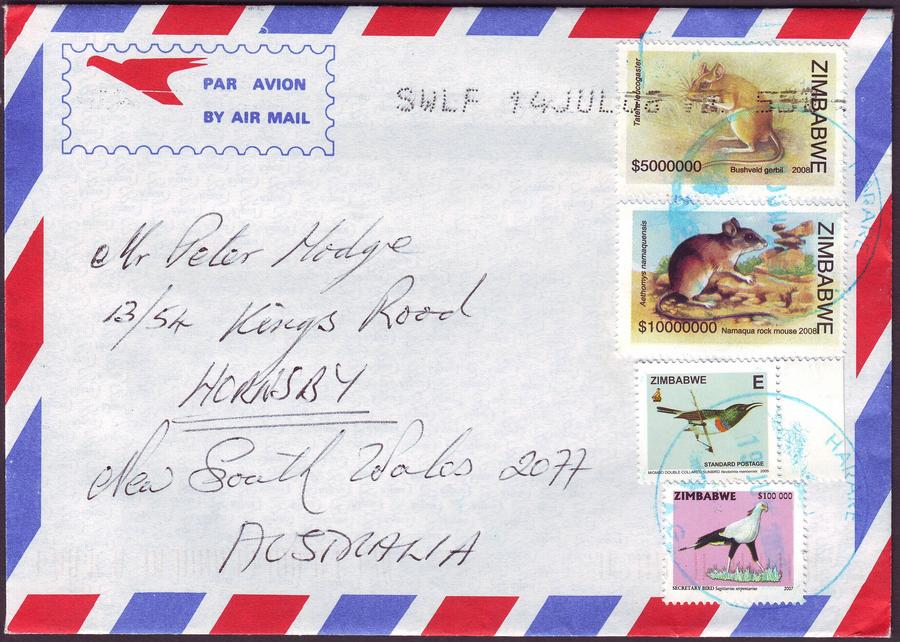 PAR AVION
BY AIR MAIL
SWLF 14JUL08
Tatera leucogaster
ZIMBABWE
$5000000
Bushveld gerbil 2008
Mr Peter Hodge
13/54 Kings Road
HORNSBY
New South Wales 2077
AUSTRALIA
Aethomys namaquensis
ZIMBABWE
$10000000
Namaqua rock mouse 2008
ZIMBABWE E
STANDARD POSTAGE
MIOMBO DOUBLE COLLARED SUNBIRD
2005
HARARE
HARARE
ZIMBABWE $100 000
SECRETARY BIRD Sagittarius serpentarius 2007